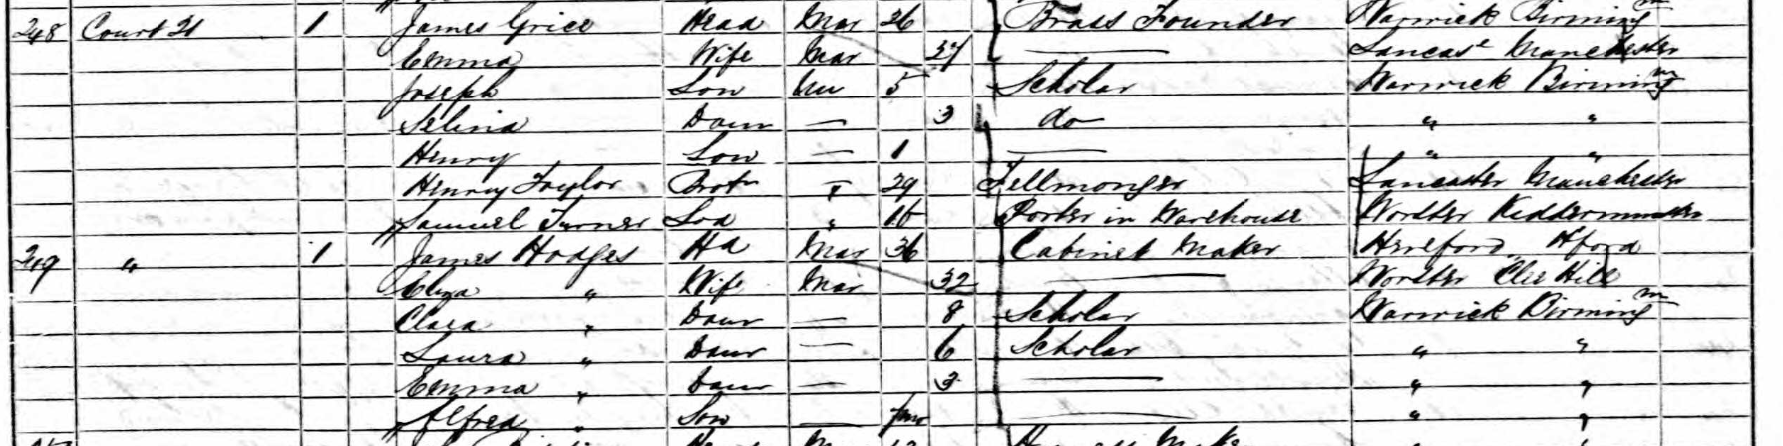 248 Court 21 1 James Grice Head Mar 26 Brass Founder Warwick Birmingm
Emma Wife Mar 27 Lancase Manchester
Joseph Son Un 5 Scholar Warwick Birmingm
Selina Daur — 3 do " "
Henry Son — 1 — " "
Henry Taylor Brotr 29 Fellmonger Lancaster Manchester
Samuel Turner Lod " 16 Porter in Warehouse Worster Kidderminster
249 " 1 James Hodges Hd Mar 36 Cabinet Maker Hereford Hford
Eliza " Wife Mar 32 — Worster Clee Hill
Clara " Daur — 8 Scholar Warwick Birmingm
Laura " Daur — 6 Scholar " "
Emma " Daur — 3 — " "
Alfred " Son — — " "